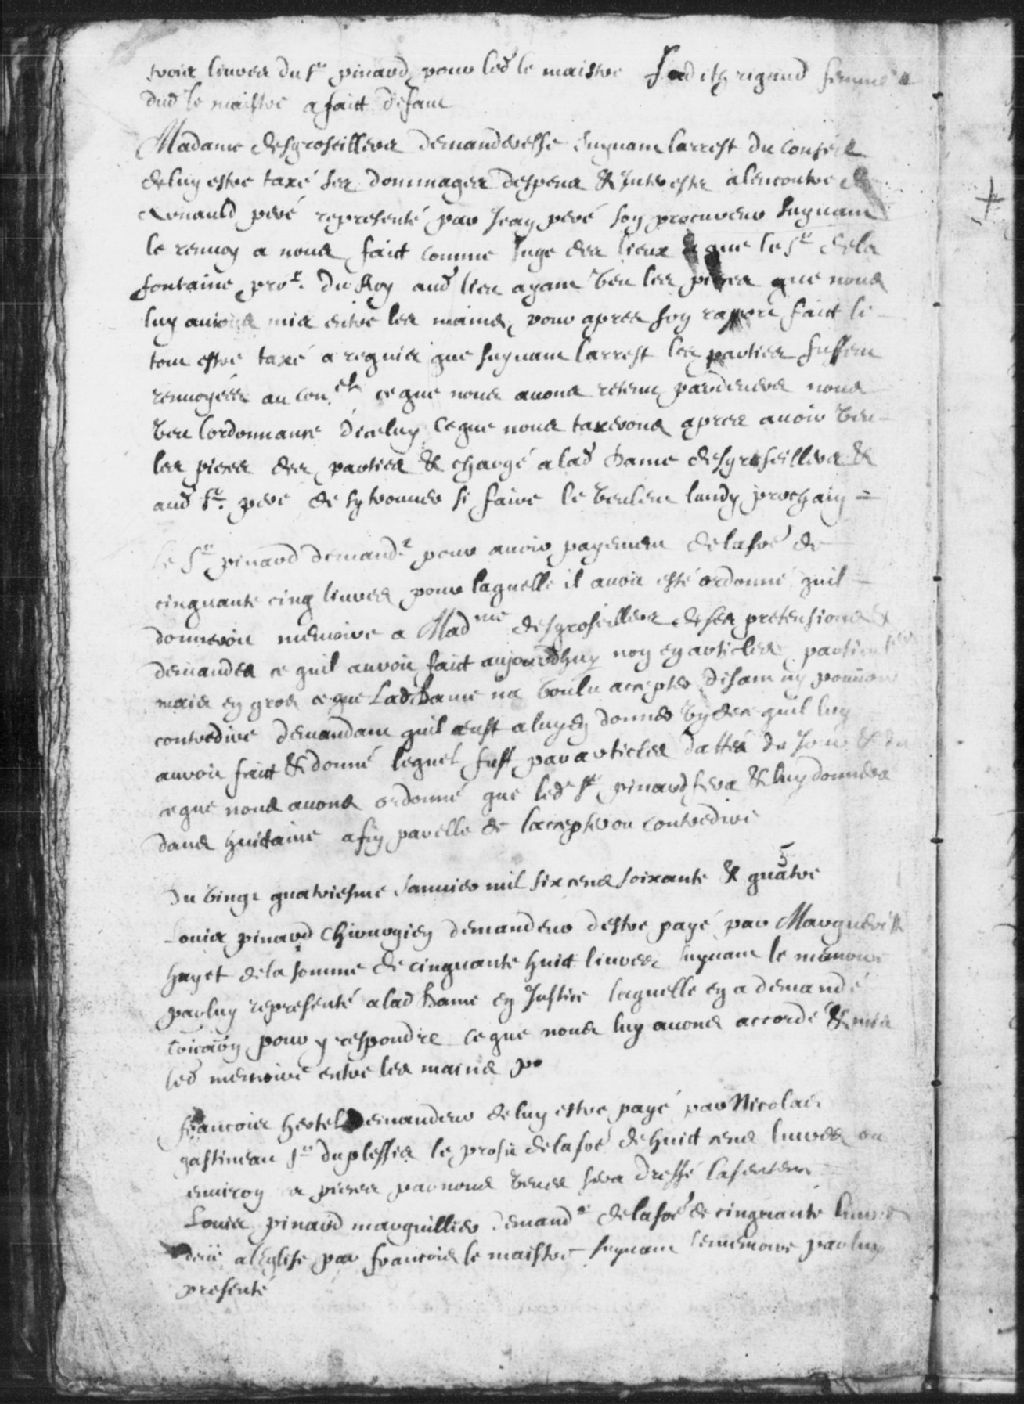 trois livres du Sr pinard pour led le maistre Judith rigaud femme
dud le maistre a faict defaut
Madame desgroseillers demanderesse suyvant larrest du conseil
de luy estre taxé ses dommages despens & Interests alencontre de
Renauld pevé representé par Jean pevé son procureur suyvant
le renvoy a nous faict comme Juge des lieux que le Sr de la
fontaine pror. du Roy aud lieu ayant veu les pieces que nous
luy avons mis entre les mains, pour apres son raport faict le
tout estre taxé a requis que suyvant larrest les parties fussent
renvoyées au conel ce que nous avons retenu pardevers nous
veu lordonnance diceluy ce que nous taxerons apres avoir veu
les pieces des parties & chargé a lad Dame desgroseillers &
aud Sr. pevé de sy trouver si faire le veulent lundy prochain
le Sr pinard demandr pour avoir payement de la soe de
cinquante cinq livres pour laquelle il avoit esté ordonné quil
donneroit memoire a Madme desgroseillers de ses pretensions &
demandes ce quil auroit faict aujourdhuy non en articles
mais en gros ce que Lad Dame na voulu accepter disant ny pouvoir
contredire demandant quil eust a luy en donner quil luy
auroit faict & donné lequel fust par articles datté du Jour &
ce que nous avons ordonné que led Sr pinard fera & luy donnera
dans huictaine afin par elle de laccepter ou contredire
Du vingt quatriesme Janvier mil six cens soixante & quatre 5
Louis pinard Chirurgien demandeur destre payé par Marguerite
hayet de la somme de cinquante huict livres suyvant le memoire
par luy representé a lad Dame en Justice laquelle en a demandé
pour y respondre ce que nous luy avons accordé & mis
led memoire entre les mains
francois hertel demandeur de luy estre payé par Nicolas
gastineau Sr duplessis le profit de la soe de huict cens livres ou
environ pieces par nous veues sera dressé la sentence
Louis pinard marguillier demandr de la soe de cinquante livres
deue a leglise par francois le maistre suyvant le memoire par luy
presenté